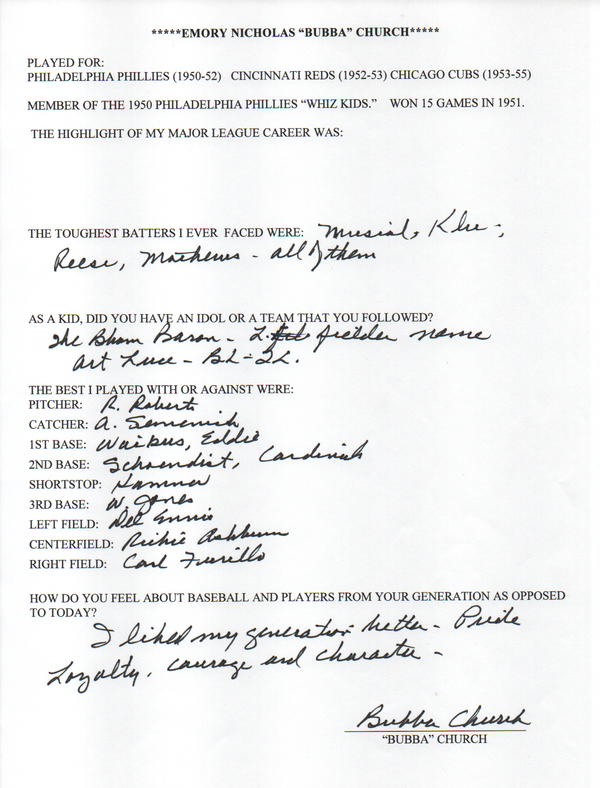 *****EMORY NICHOLAS “BUBBA” CHURCH*****
PLAYED FOR:
PHILADELPHIA PHILLIES (1950-52) CINCINNATI REDS (1952-53) CHICAGO CUBS (1953-55)
MEMBER OF THE 1950 PHILADELPHIA PHILLIES “WHIZ KIDS.” WON 15 GAMES IN 1951.
THE HIGHLIGHT OF MY MAJOR LEAGUE CAREER WAS:
THE TOUGHEST BATTERS I EVER FACED WERE: Musial, Klu-,
Reese, Mathews - all of them
AS A KID, DID YOU HAVE AN IDOL OR A TEAM THAT YOU FOLLOWED?
The Bham Baron - L. fielder name
Art Luce - BL-TL.
THE BEST I PLAYED WITH OR AGAINST WERE:
PITCHER: R. Roberts
CATCHER: A. Semenick
1ST BASE: Waitkus, Eddie
2ND BASE: Schoendist, Cardinals
SHORTSTOP: Hamner
3RD BASE: W. Jones
LEFT FIELD: Del Ennis
CENTERFIELD: Richie Ashburn
RIGHT FIELD: Carl Furillo
HOW DO YOU FEEL ABOUT BASEBALL AND PLAYERS FROM YOUR GENERATION AS OPPOSED
TO TODAY?
I liked my generation better - Pride
Loyalty, courage and character -
Bubba Church
“BUBBA” CHURCH